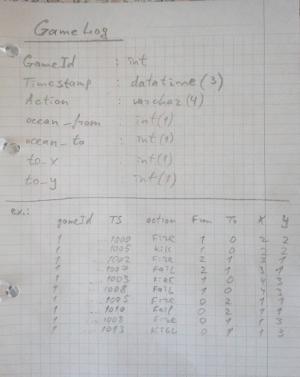 GameLog
GameId : int
Timestamp : datatime(3)
Action : varchar(4)
ocean_from : int(1)
ocean_to : int(1)
to_x : int(1)
to_y : int(1)
ex.:
gameId TS action From To X Y
1 1000 Fire 1 0 2 2
1 1005 1 0 2
1 1002 Fire 2 1 3 1
1 1007 Fail 2 1 3 1
1 1003 Fire 1 0 4 3
1 1008 Fail 1 0 4 3
1 1005 Fire 0 2 1 1
1 1010 Fail 0 2 1 1
1 Fire 0 1 1 3
1 1013 0 1 1 3